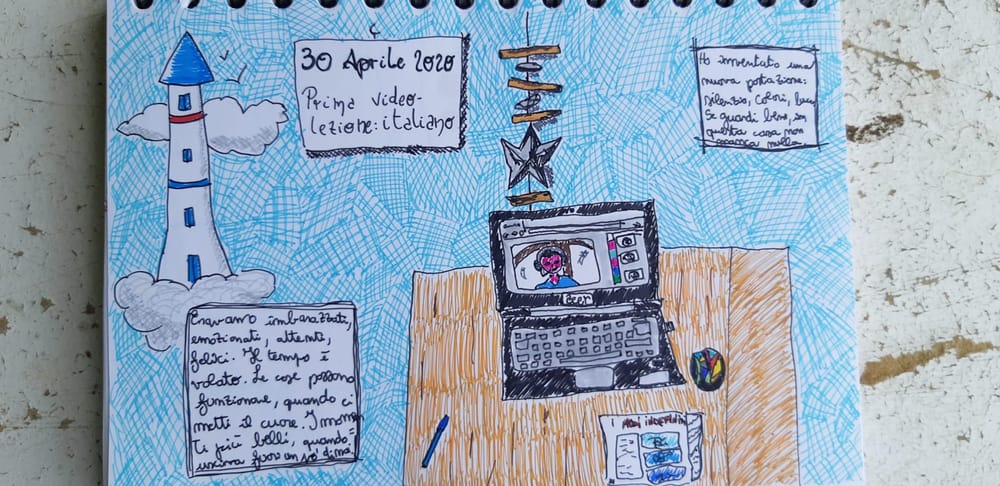 30 Aprile 2020
Prima video-
lezione: italiano
Ho inventato una
nuova postazione:
silenzio, colori, luce.
Se guardi bene, in
questa casa non
manca nulla.
Eravamo imbarazzati,
emozionati, attenti,
felici. Il tempo è
volato. Le cose possono
funzionare, quando ci
metti il cuore. I momen
ti più belli, quando
acer
I